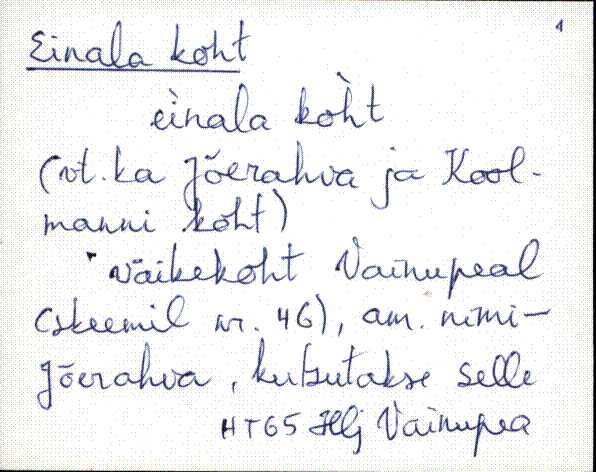 1
Einala koht
èinala kòht
(vt. ka Jõerahva ja Kool-
manni koht)
väikekoht Vainupeal
(skeemil nr. 46), am. nimi -
Jõerahva, kutsutakse selle
HT65 Hlj Vainupea